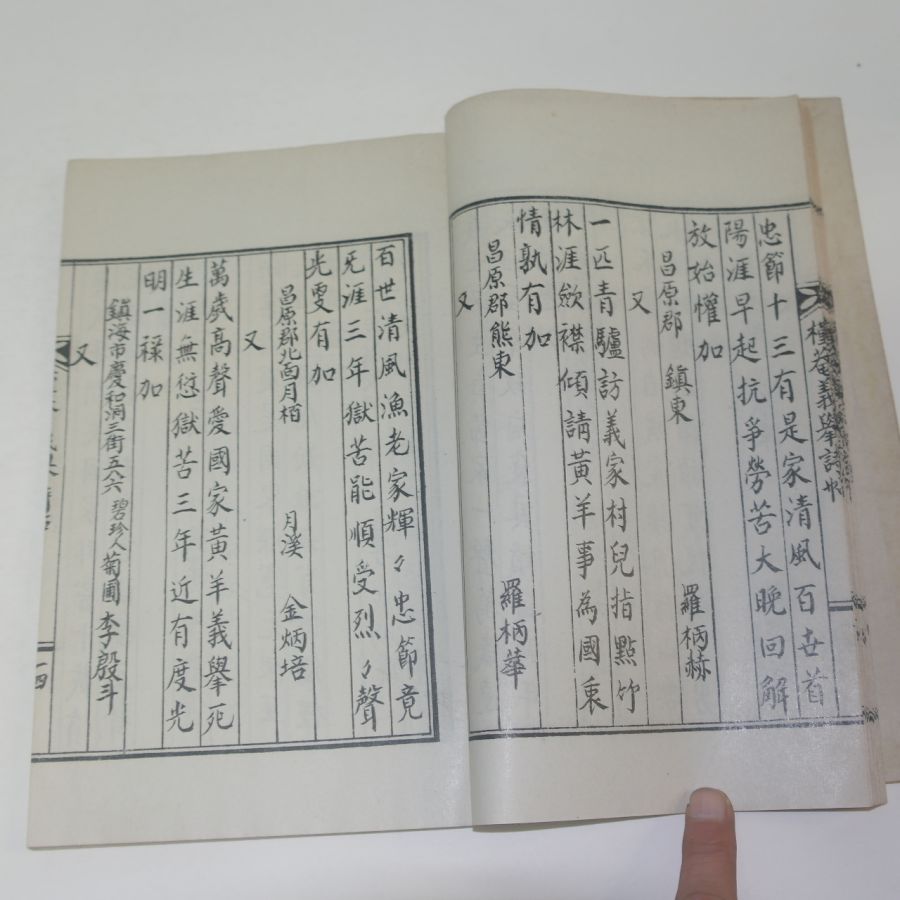 忠節十三有是家清風百世首
陽涯早起抗爭勞苦大晚回解
放始懽加
昌原郡 鎮東 羅柄赫
又
一匹青驢訪義家村兒指點竹
林涯歛襟傾請黃羊事為國衷
情孰有加
昌原郡熊東 羅柄華
又
百世清風漁老家輝々忠節竟
无涯三年獄苦能順受烈々聲
光更有加
昌原郡北面月栢 月溪 金炳培
又
萬歲高聲愛國家黃羊義舉死
生涯無愆獄苦三年近有度光
明一祿加
鎮海市慶和洞三街五八六 碧珍人菊圃 李殷斗
又
一四